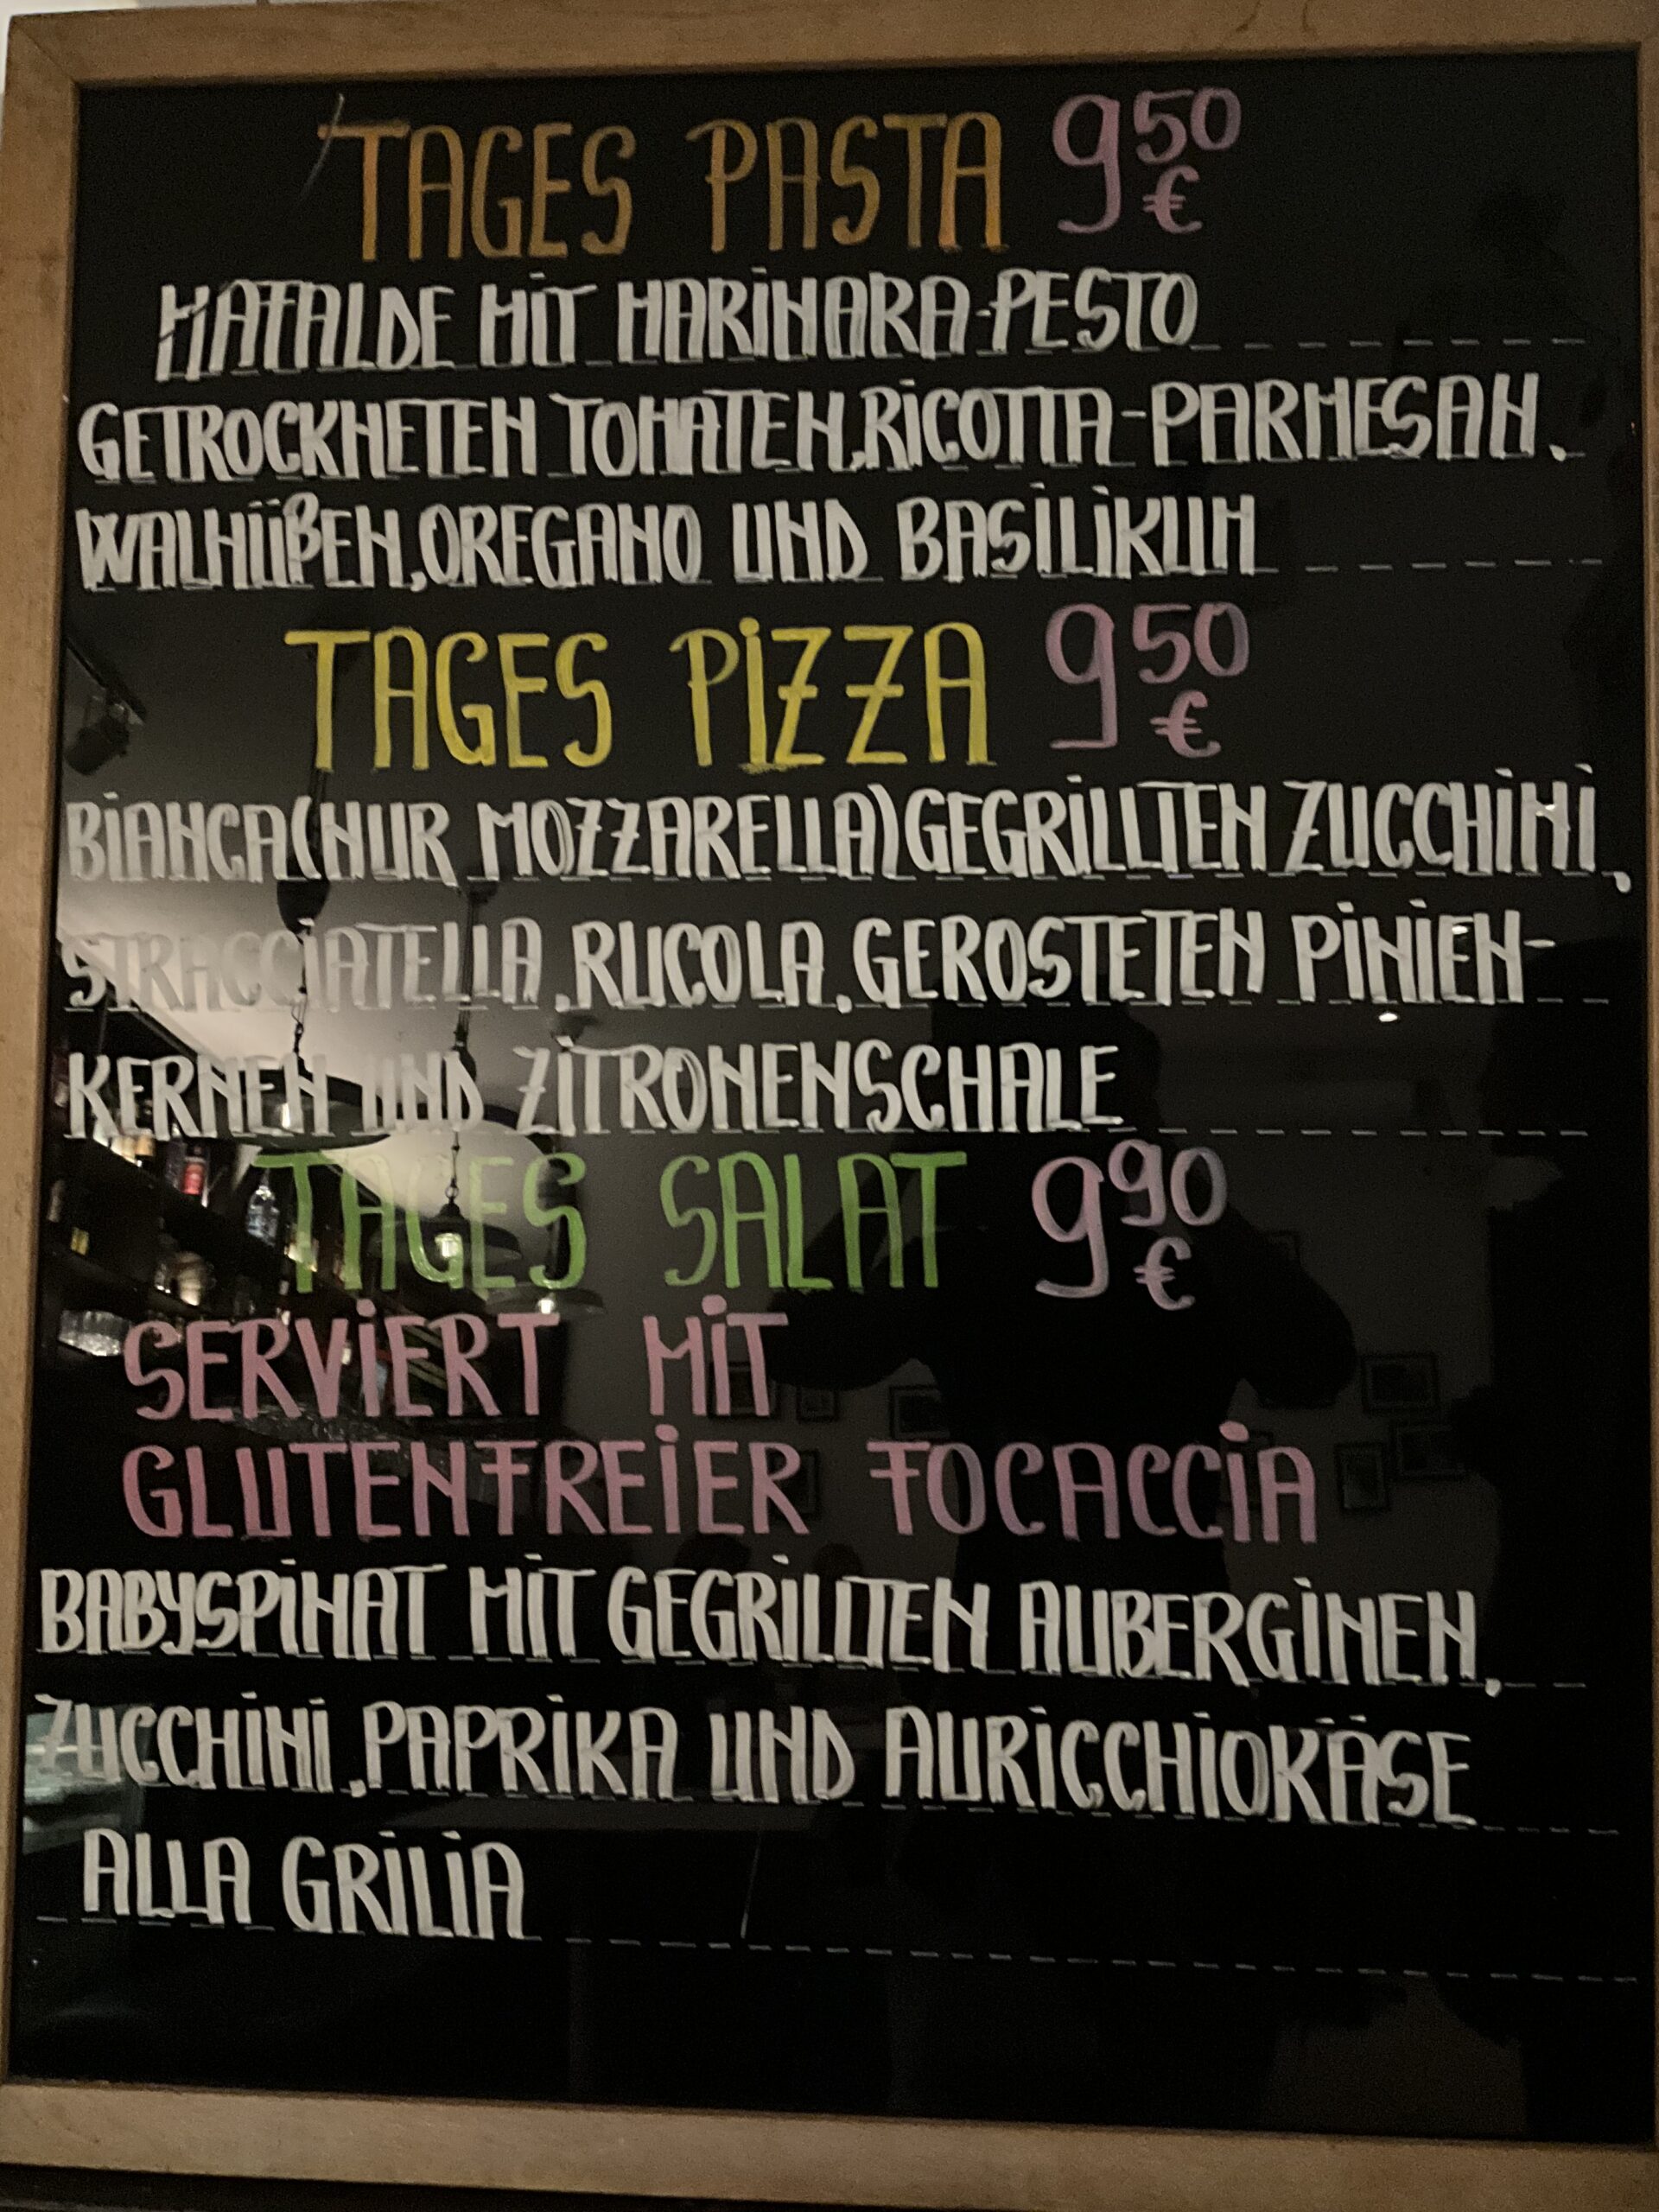 TAGES PASTA 9,50 €
MAFALDE MIT MARINARA-PESTO
GETROCKNETEN TOMATEN, RICOTTA-PARMESAN,
WALNÜßEN, OREGANO UND BASILIKUM
TAGES PIZZA 9,50 €
BIANCA (NUR MOZZARELLA) GEGRILLTEN ZUCCHINI,
STRACCIATELLA, RUCOLA, GEROSTETEN PINIEN-
KERNEN UND ZITRONENSCHALE
TAGES SALAT 9,90 €
SERVIERT MIT
GLUTENFREIER FOCACCIA
BABYSPINAT MIT GEGRILLTEN AUBERGINEN,
ZUCCHINI, PAPRIKA UND AURICCHIOKÄSE
ALLA GRILIA